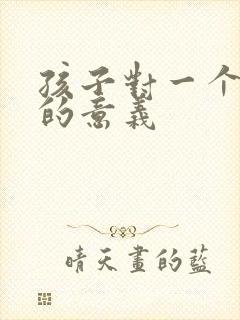 孩子對一个
的意義
晴天畫的藍